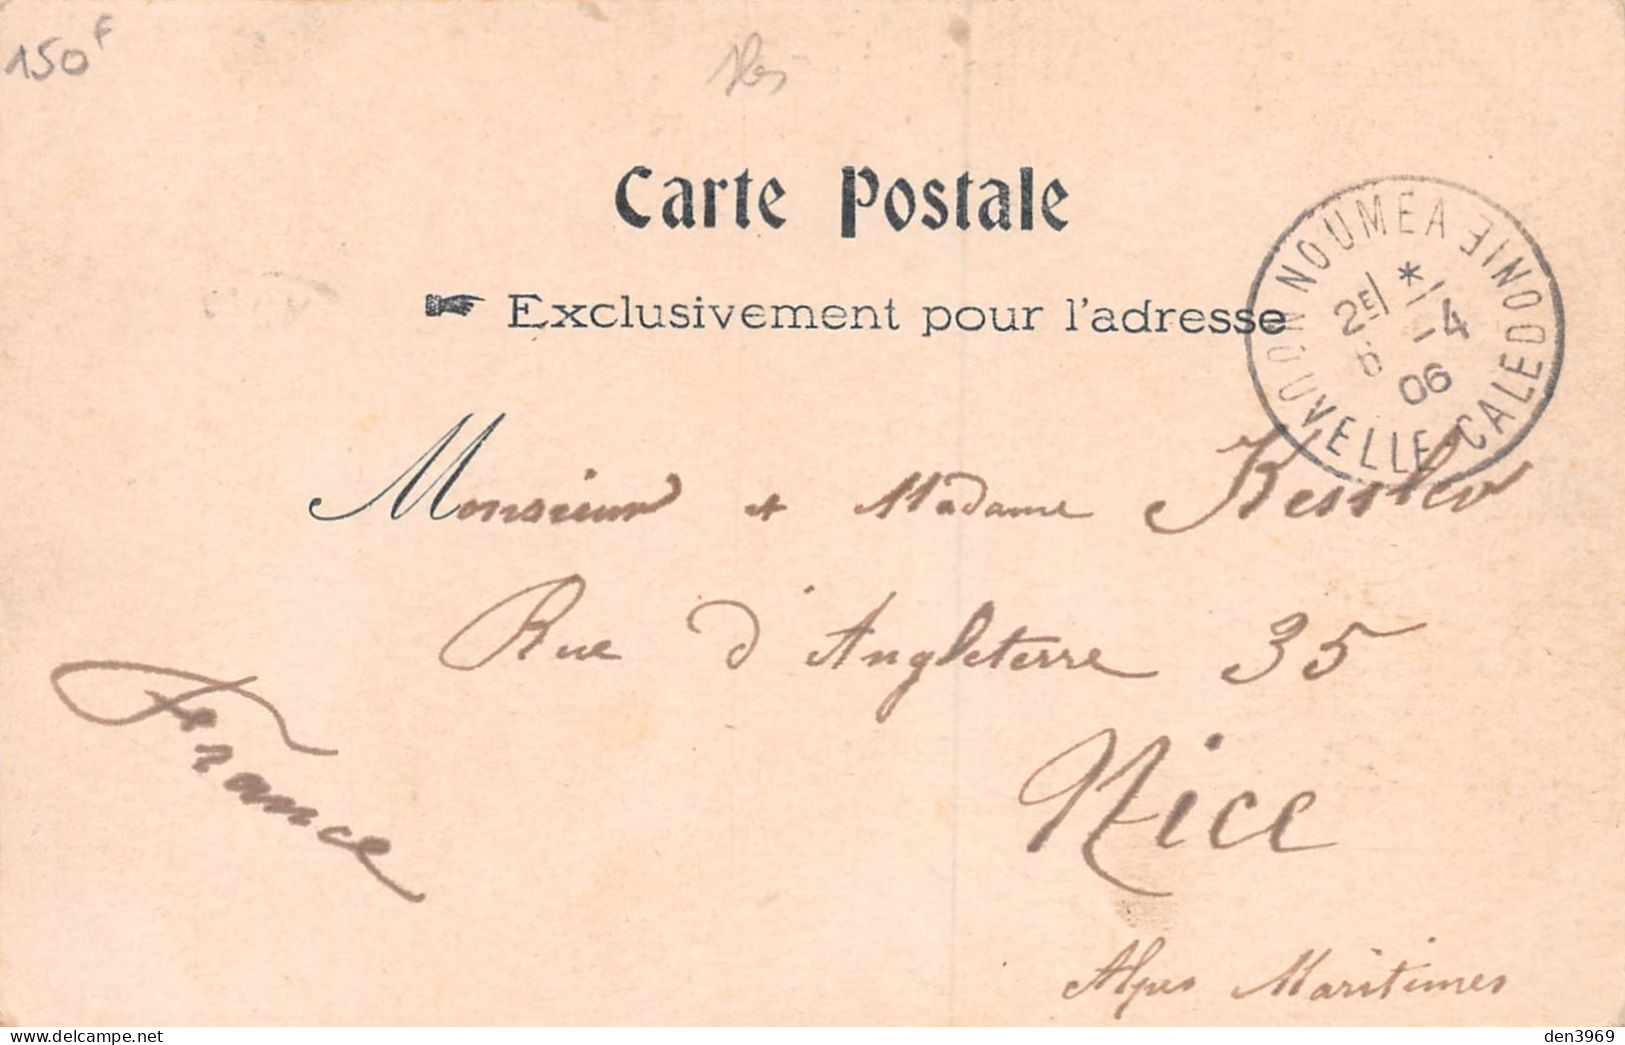 150F
Carte Postale
Exclusivement pour l'adresse
NOUMEA
NOUVELLE-CALEDONIE
2E *
6 -4
06
Monsieur et Madame Kessler
Rue d'Angleterre 35
Nice
Alpes Maritimes
France
www.delcampe.net
den3969